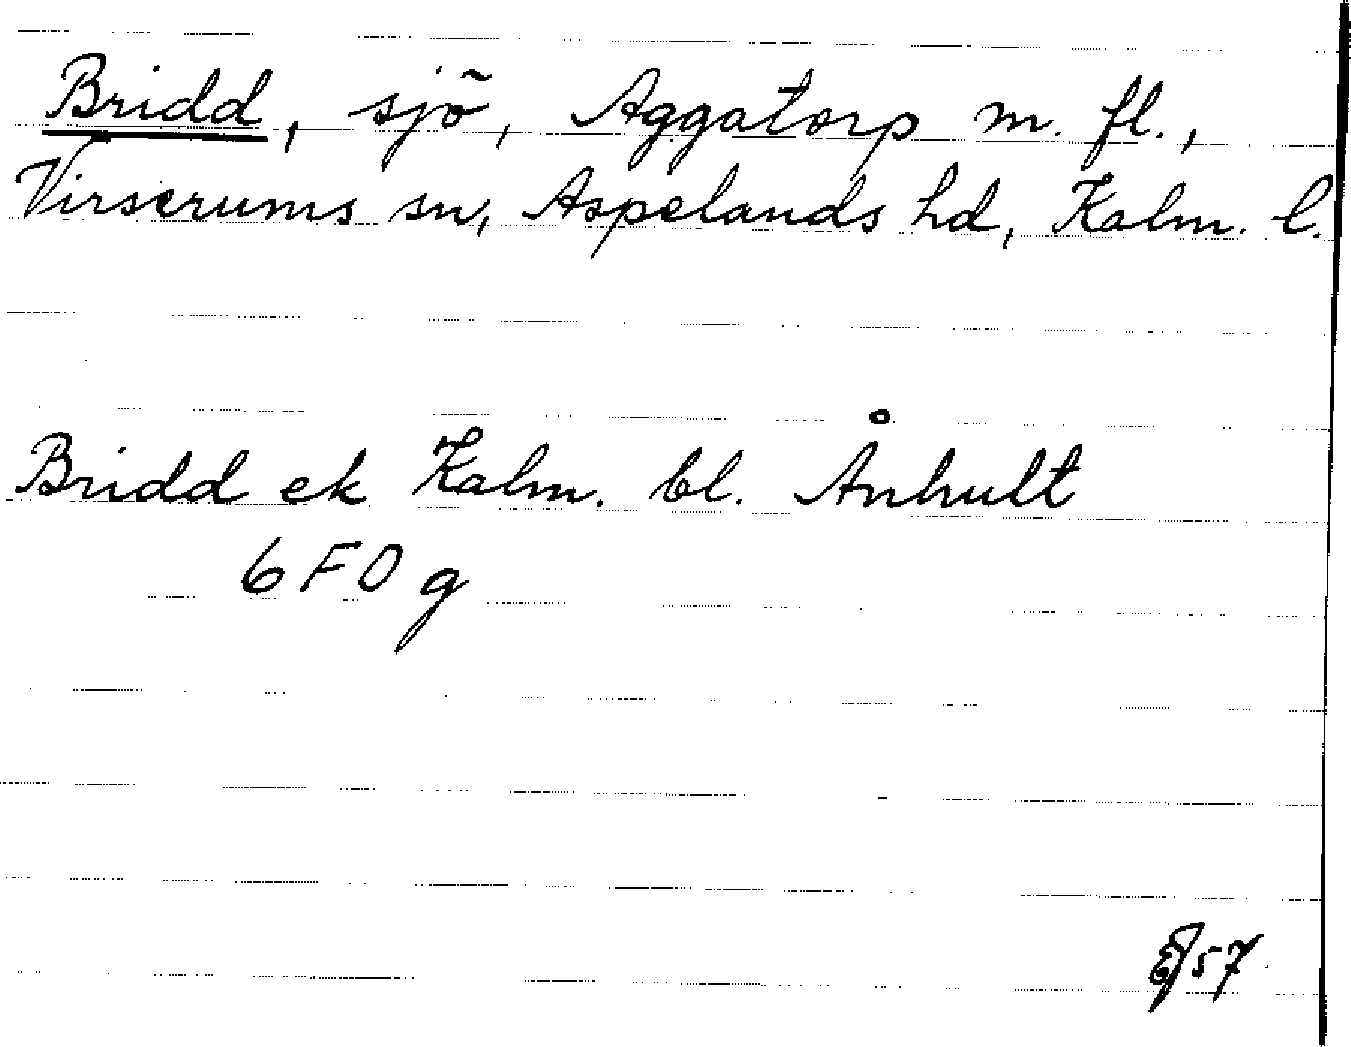 Bridd, sjö, Aggatorp m. fl.,
Virserums sn, Aspelands hd, Kalm. l.
Bridd ek Kalm. bl. Ånhult
6 F 0 g
57